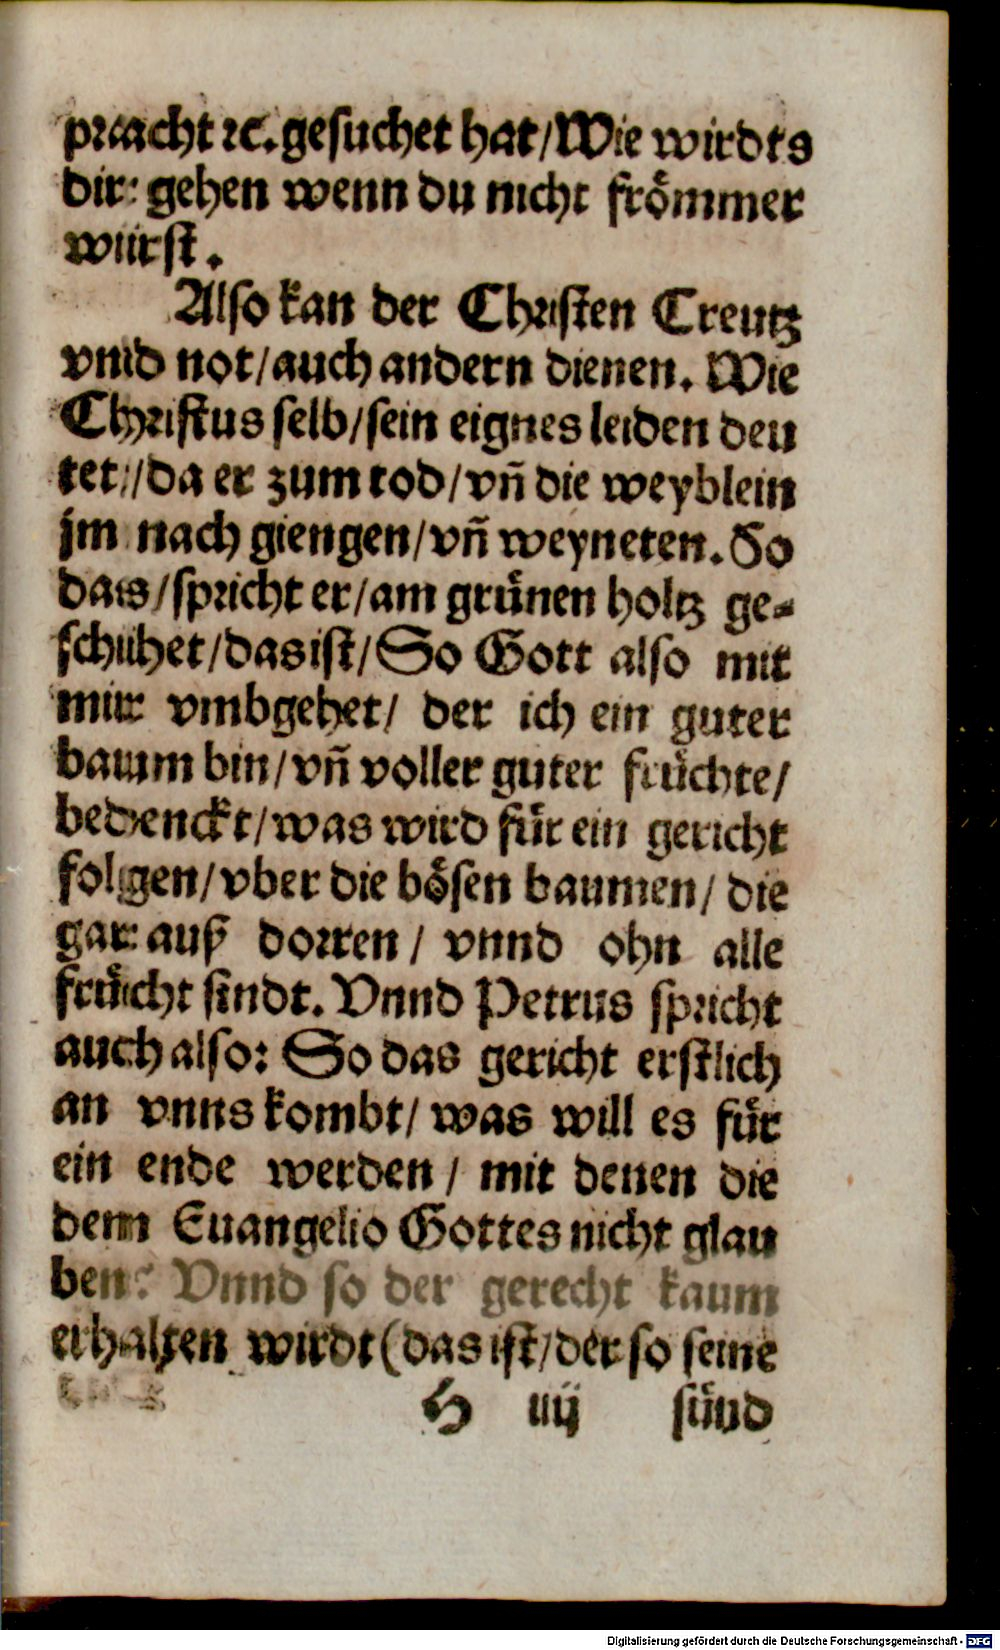 pracht ꝛc. gesuchet hat/Wie wirdts
dir gehen wenn du nicht frömmer
würst.
Also kan der Christen Creutz
vnd not/auch andern dienen. Wie
Christus selb/sein eignes leiden deu
tet/da er zum tod/vñ die weyblein
jm nach giengen/vñ weyneten. So
das/spricht er/am grünen holtz ge-
schihet/das ist/So Gott also mit
mir vmbgehet/ der ich ein guter
baum bin/vñ voller guter früchte/
bedenckt/was wird für ein gericht
folgen/vber die bösen baumen/ die
gar auß dorren/ vnnd ohn alle
frücht sindt. Vnnd Petrus spricht
auch also: So das gericht erstlich
an vnns kombt/ was will es für
ein ende werden/ mit denen die
dem Euangelio Gottes nicht glau
ben? Vnnd so der gerecht kaum
erhalten wirdt (das ist/der so seine
H iiij sünd
Digitalisierung gefördert durch die Deutsche Forschungsgemeinschaft - DFG